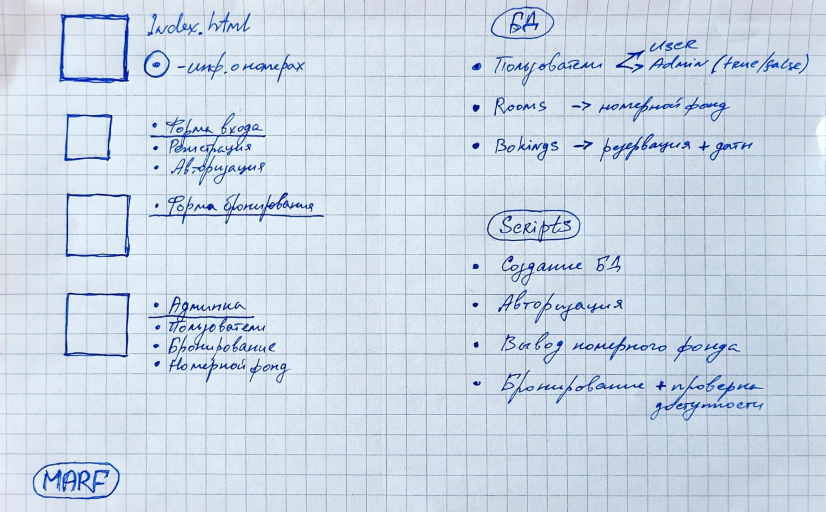 Index.html
- инф. о номерах
• Форма входа
• Регистрация
• Авторизация
• Форма бронирования
• Админка
• Пользователи
• Бронирование
• Номерной фонд
MARF
БД
• Пользователи
User
Admin (true/false)
• Rooms -> номерной фонд
• Bokings -> резервация + даты
Scripts
• Создание БД
• Авторизация
• Вывод номерного фонда
• Бронирование + проверка
доступности